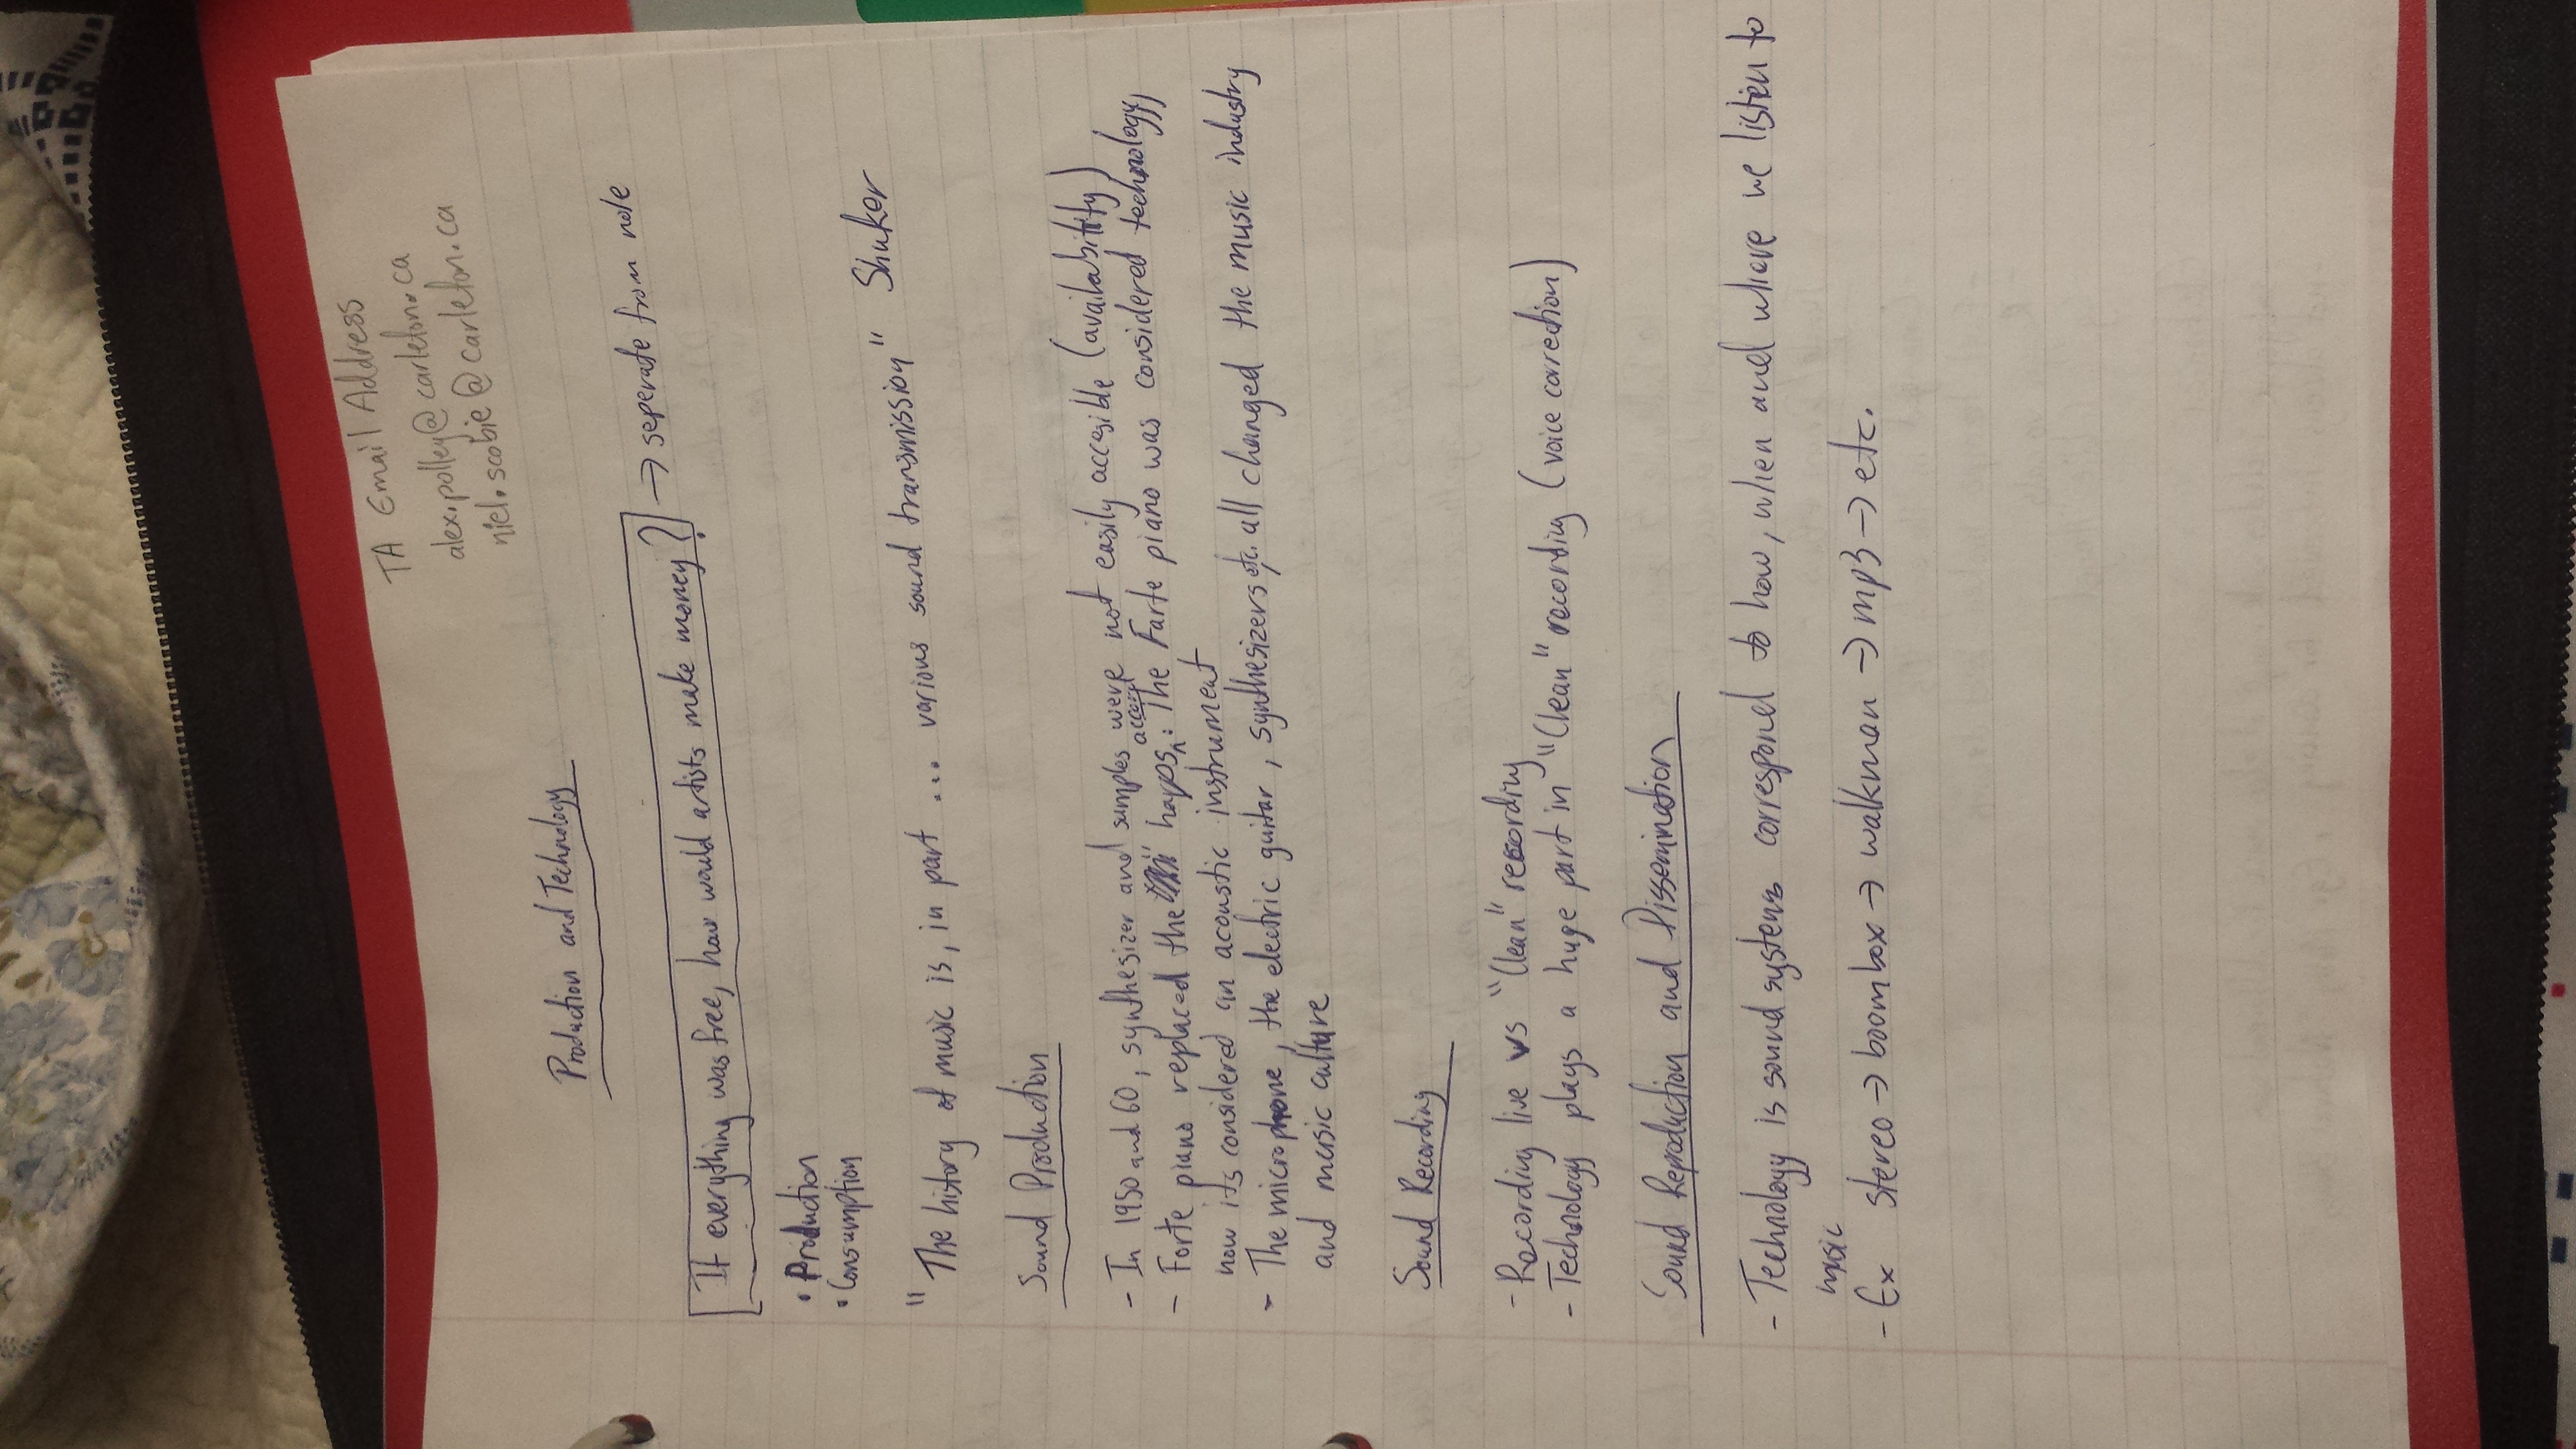 TA Email Address
alex.polley@carleton.ca
niel.scobie@carleton.ca
Production and Technology
If everything was free, how would artists make money? → seperate from note
• Production
• Consumption
"The history of music is, in part ... various sound transmission" Shuker
Sound Production
- In 1950 and 60, synthesizer and samples were not easily accesible (availability)
- Forte piano replaced the : The Farte piano was considered technology,
now its considered an acoustic instrument
- The microphone, the electric guitar, synthesizers etc. all changed the music industry
and music culture
Sound Recording
- Recording live vs "Clean" recording
- Technology plays a huge part in "Clean" recording (voice correction)
Sound Reproduction and Dissemination
- Technology is sound systems correspond to how, when and where we listen to
music
- Ex stereo → boombox → walkman → mp3 → etc.